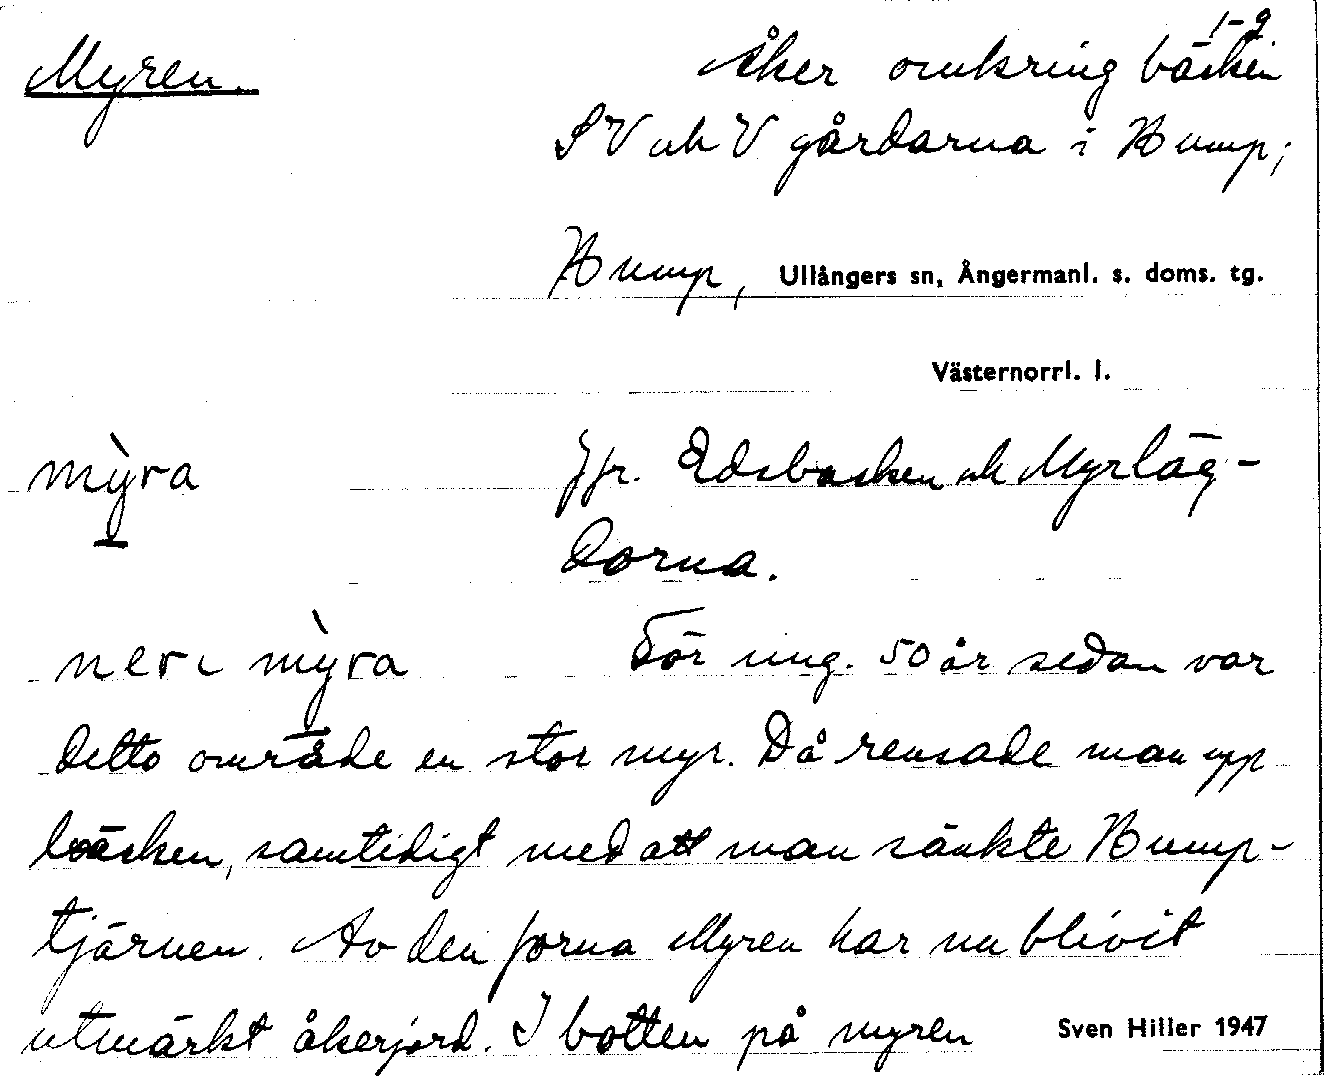 1-9
Myren.
Åker omkring bäcken
SV och V gårdarna i Hump;
Hump, Ullångers sn, Ångermanl. s. doms. tg.
Västernorrl. l.
mỳra
Jfr. Edsbacken och Myrläg-
dorna.
neri mỳra
För ung. 50 år sedan var
detta område en stor myr. Då rensade man upp
bäcken, samtidigt med att man sänkte Hump-
tjärnen. Av den forna Myren har nu blivit
utmärkt åkerjord. I botten på myren
Sven Hiller 1947